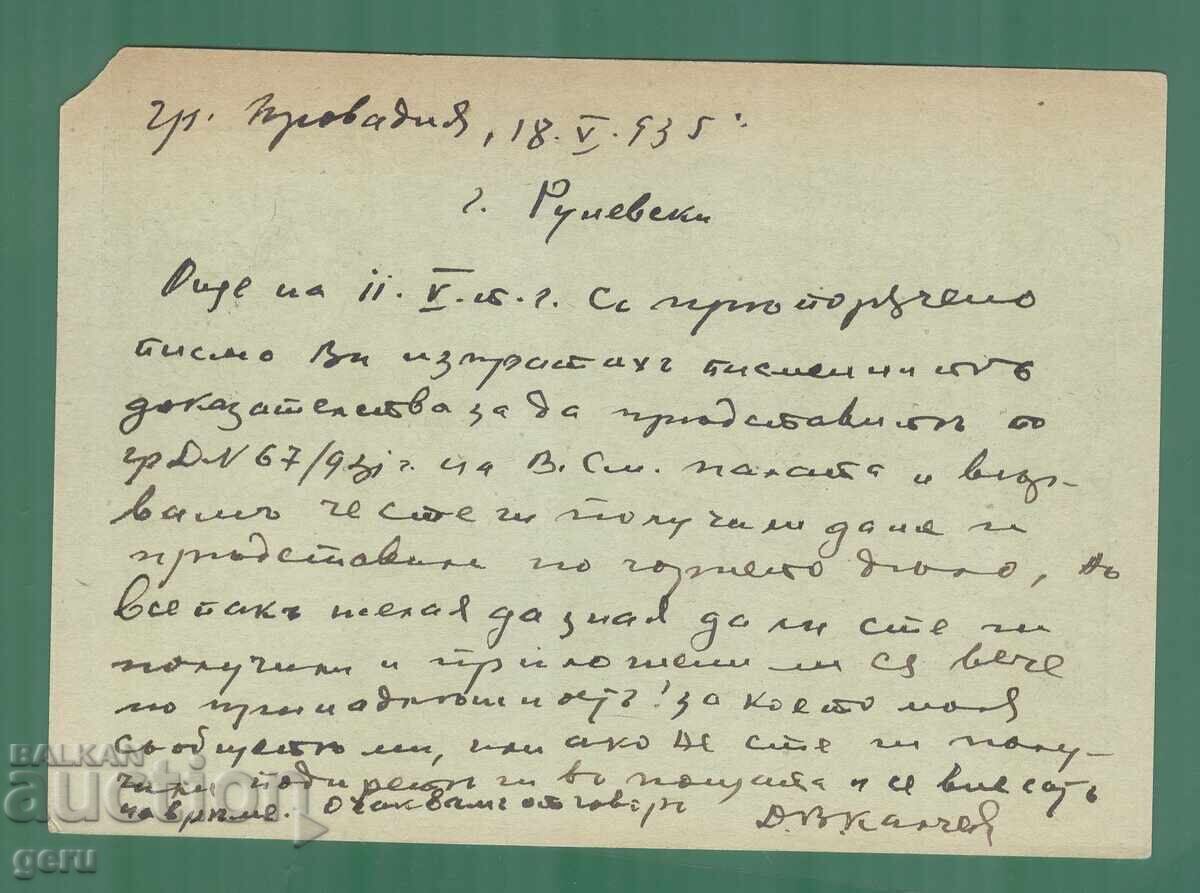 гр. Провадия, 18.V.935
г. Руневски
Още на 11.V.т.г. съ прѣпорѫчено
писмо Ви изпратихъ писменитѣ
доказателства за да прѣдставитѣ по
гр.Д.N 67/93 г. на В. См. палата и вѣр-
вамъ че сте ги получили да ги
прѣдставили по горнето дѣло, но
все пакъ желая да зная дали сте ги
получили и приложени ли сѫ вече
по принадлѣжностъ! за което моля
съобщетѣ ми, или ако не сте ги полу-
чили подиретѣ ги въ пощата и се внесатъ
на врѣме. Очаквамъ отговоръ Д.В.Калчев
BALKAN
auction
geru